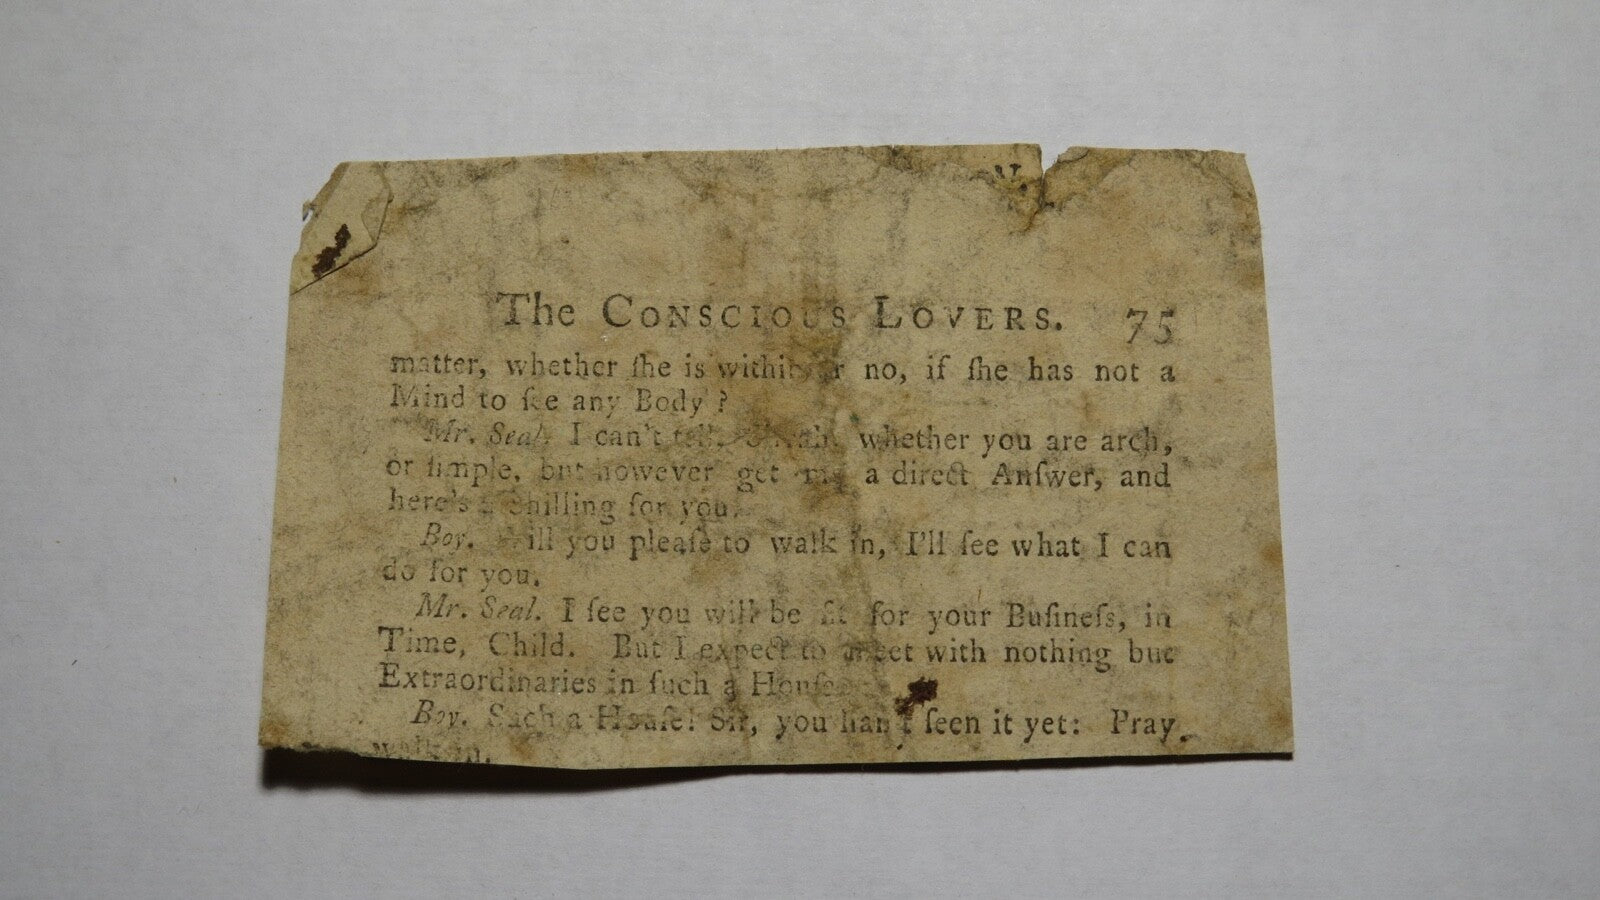 The CONSCIOUS LOVERS. 75
matter, whether ſhe is within or no, if ſhe has not a
Mind to ſee any Body ?
Mr. Seal. I can't tell, whether you are arch,
or ſimple, but however get me a direct Anſwer, and
here's a Shilling for you.
Boy. Will you pleaſe to walk in, I'll ſee what I can
do for you.
Mr. Seal. I ſee you will be fit for your Buſineſs, in
Time, Child. But I expect to meet with nothing but
Extraordinaries in ſuch a Houſe
Boy. Such a Houſe! Sir, you han't ſeen it yet: Pray
walk in.